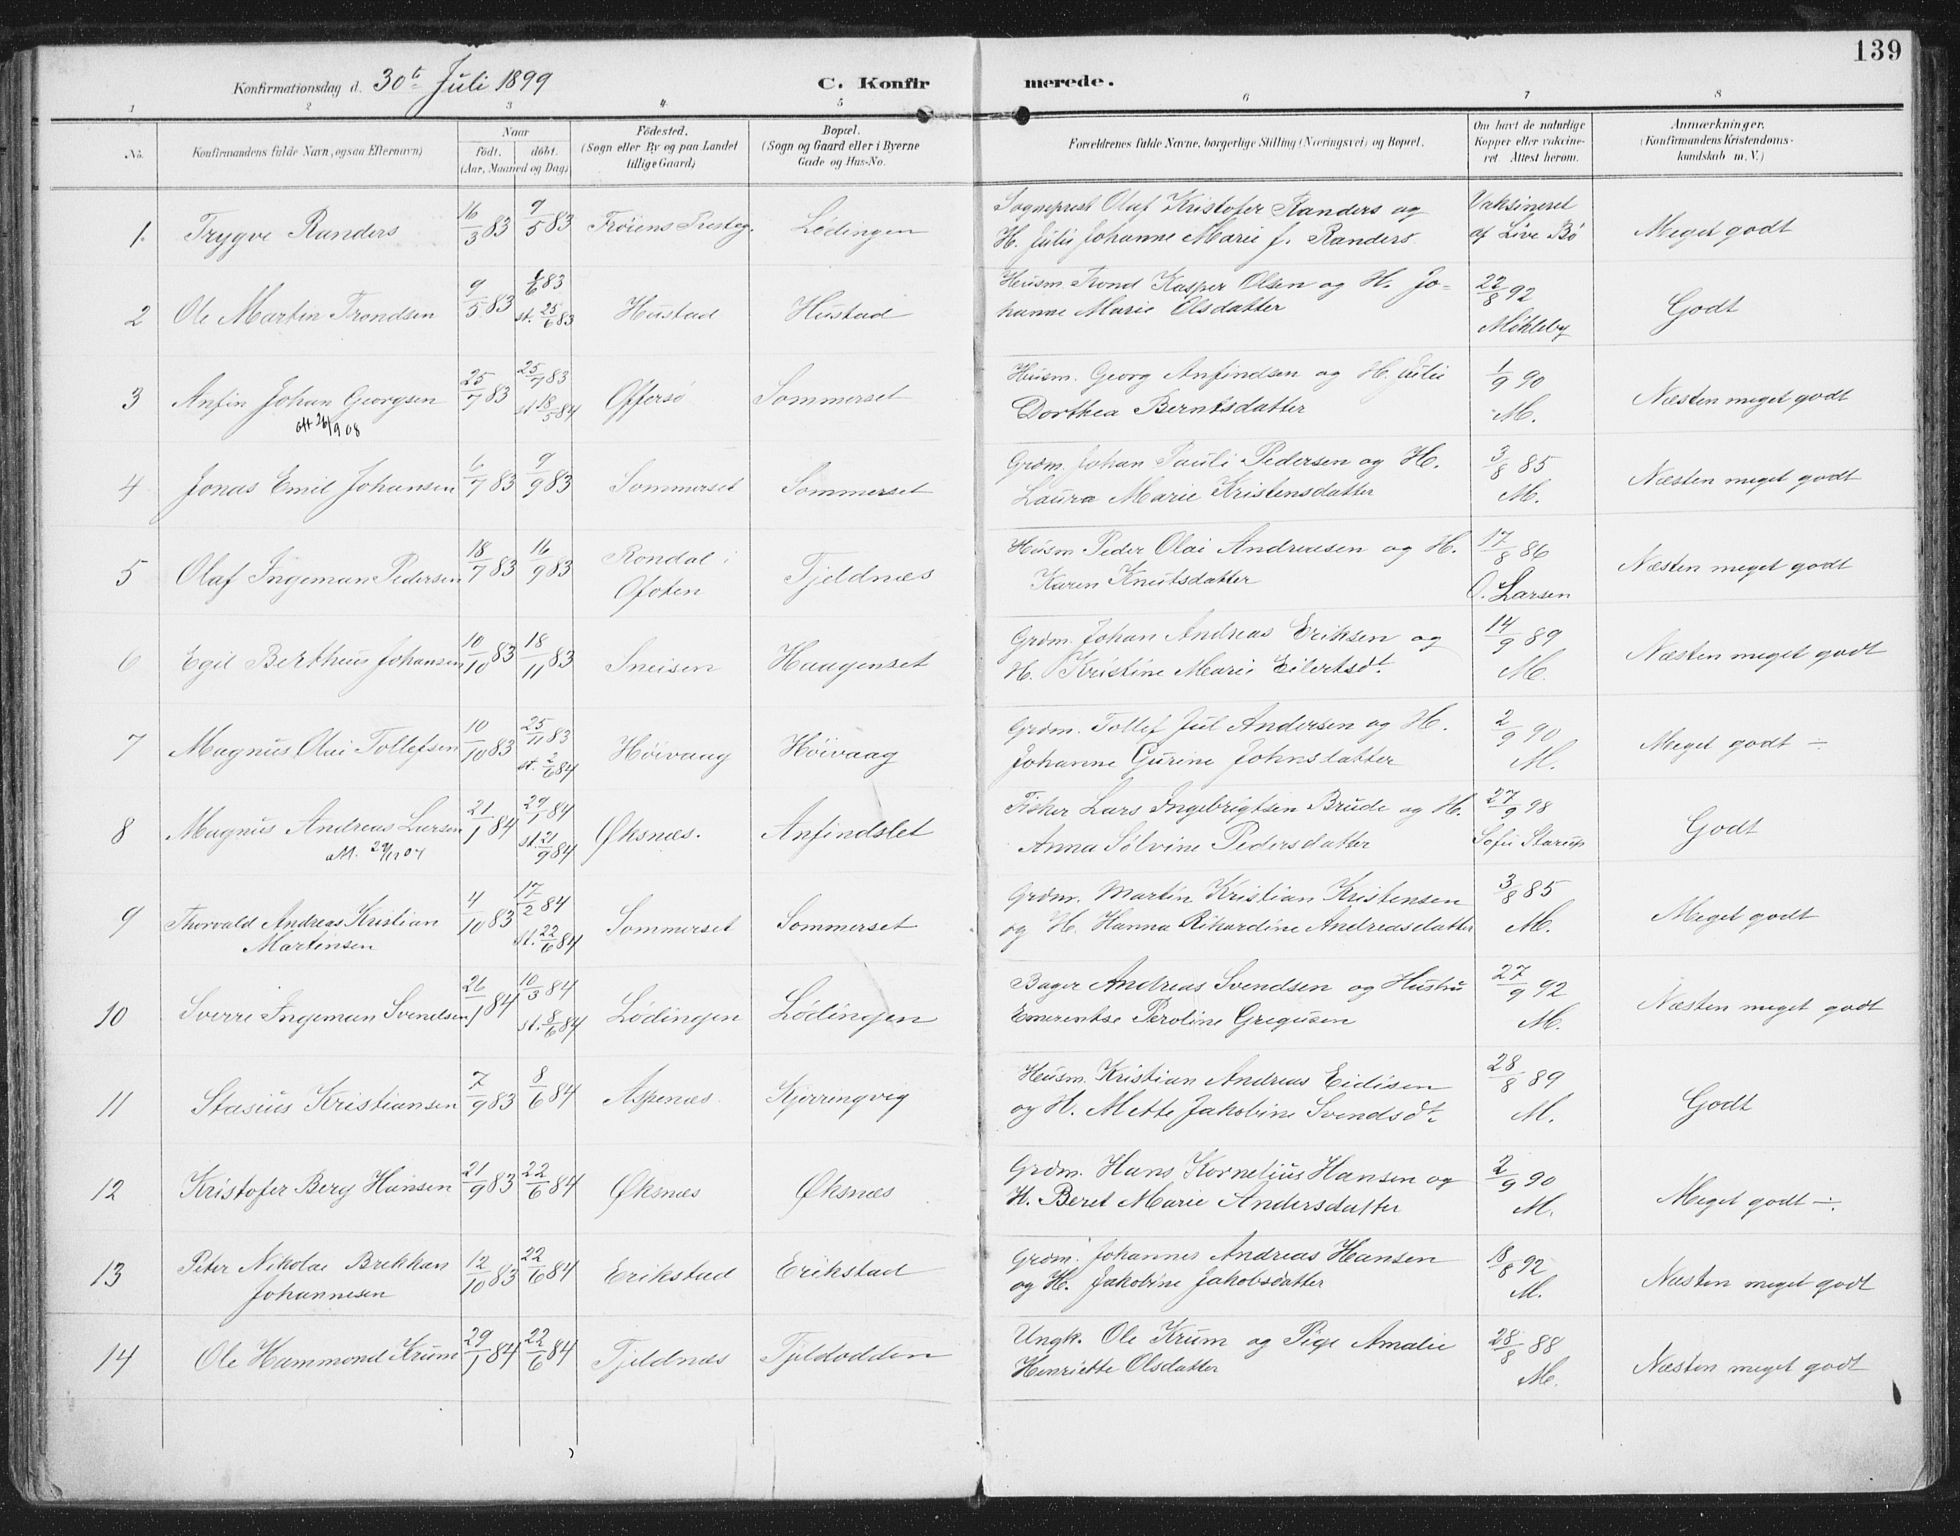 139
Konfirmationsdag d. 30te Juli 1899
C. Konfirmerede.
1 2 3 4 5 6 7 8
No.
Konfirmandens fulde Navn, (ogsaa Efternavn)
Naar
Födt. döbt.
(Aar, Maaned og Dag)
Födested.
(Sogn eller By og paa Landet
tillige Gaard)
Bopæl.
(Sogn og Gaard eller i Byerne
Gade og Hus-No.
Forældrenes fulde Navne, borgerlige Stilling (Næringsvei) og Bopæl.
Om havt de naturlige
Kopper eller vakcine-
ret. Attest herom.
Anmærkninger.
(Konfirmandens Kristendoms-
kundskab m. V.)
1. Trygve Randers 16/3 83 9/5 83 Trøiens Presteg. Lødingen Sogneprest Olaf Kristofer Randers og Vaksineret Meget godt
H. Julie Johanne Marie f. Randers af Live Bø
2 Ole Martin Trondsen 9/5 83 1/6 83 Hustad Hustad Husm. Trond Kasper Olsen og H. Jo- 22/8 92 Godt
st. 25/6 83 hanne Marie Olsdatter Möhleby
3 Anfin Johan Georgsen 25/7 83 25/7 83 Offersø Sommerset Husm. Georg Anfindsen og H. Julie 1/9 90 Næsten meget godt
att 26/9 08 st 18/5 84 Dorthea Berntsdatter M.
4 Jonas Emil Johansen 6/7 83 9/9 83 Sommerset Sommerset Grdm. Johan Pauli Pedersen og H. 3/8 85 Næsten meget godt
Laura Marie Kristensdatter M.
5 Olaf Ingeman Pedersen 18/7 83 16/9 83 Rondal i Tjeldnæs Husm Peder Olai Andreasen og H. 17/8 86 Næsten meget godt
Ofoten Karen Knutsdatter O. Larsen
6 Egil Bertheus Johansen 10/10 83 18/11 83 Sneisen Haagenset Grdm. Johan Andreas Eriksen og 14/9 89 Næsten meget godt
H. Kristine Marie Eilertsdt. M.
7 Magnus Olai Tollefsen 10/10 83 25/11 83 Høivaag Høivaag Grdm. Tollef Jul Andersen og H. 2/9 90 Meget godt ÷
st. 2/6 84 Johanne Gurine Johnsdatter M.
8 Magnus Andreas Larsen 21/1 84 29/1 84 Øksnæs. Anfindslet Fisker Lars Ingebrigtsen Brude og H. 27/9 98 Godt
st. 21/9 84 Anna Sølvine Pedersdatter Sofie Starup
9 Thorvald Andreas Kristian 4/10 83 17/2 84 Sommerset Sommerset Grdm. Martin Kristian Kristensen 3/8 85 Meget godt
Martinsen st. 22/6 84 og H. Hanna Rikardine Andreasdatter M.
10 Sverre Ingeman Svendsen 26/1 84 10/3 84 Lødingen Lødingen Bager Andreas Svendsen og Hustru 27/9 92 Næsten meget godt
st. 8/6 84 Emerentse Peroline Gregusen M.
11 Stasius Kristiansen 7/9 83 8/6 84 Aspenæs. Kjerringvig Husm. Kristian Andreas Eidisen 28/8 89 Godt
og H. Mette Jakobine Svendsdt. M.
12 Kristofer Berg Hansen 21/9 83 22/6 84 Øksnæs Øksnæs Grdm. Hans Kornelius Hansen og 2/9 90 Meget godt ÷
H. Beret Marie Andersdatter M.
13 Peter Nikolai Brekkan 12/10 83 22/6 84 Erikstad Erikstad Grdm. Johannes Andreas Hansen 18/8 92 Næsten meget godt
Johannesen og H. Jakobine Jakobsdatter M.
14 Ole Hammond Krum 29/1 84 22/6 84 Tjeldnæs Tjeldodden Ungk. Ole Krum og Pige Amalie 28/8 88 Næsten meget godt
Henriette Olsdatter M.